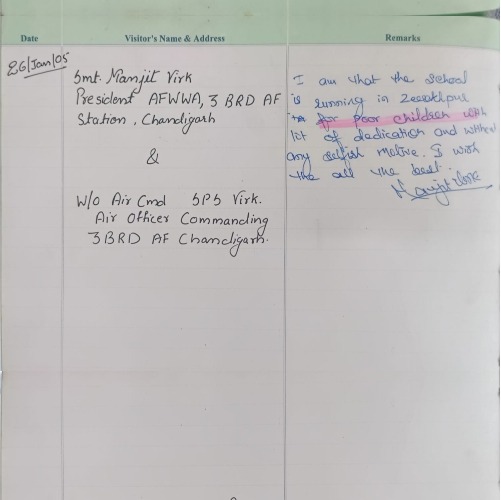 Date Visitor's Name & Address Remarks
26/Jan/05
Smt. Manjit Virk
President AFWWA, 3 BRD AF
Station, Chandigarh
&
W/o Air Cmd SPS Virk.
Air Officer Commanding
3 BRD AF Chandigarh.
I am that the School
is running in Zeerakhpur
for poor children with
lot of dedication and without
any selfish motive. I wish
the all the best.